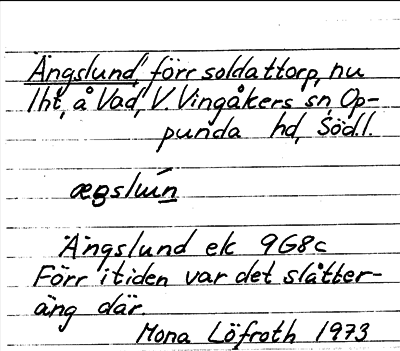 Ängslund, förr soldattorp, nu
lht, å Vad, V. Vingåkers sn, Op-
punda hd, Södl.
ægslun
Ängslund ek 9G8c
Förr i tiden var det slåtter-
äng där.
Mona Löfroth 1973